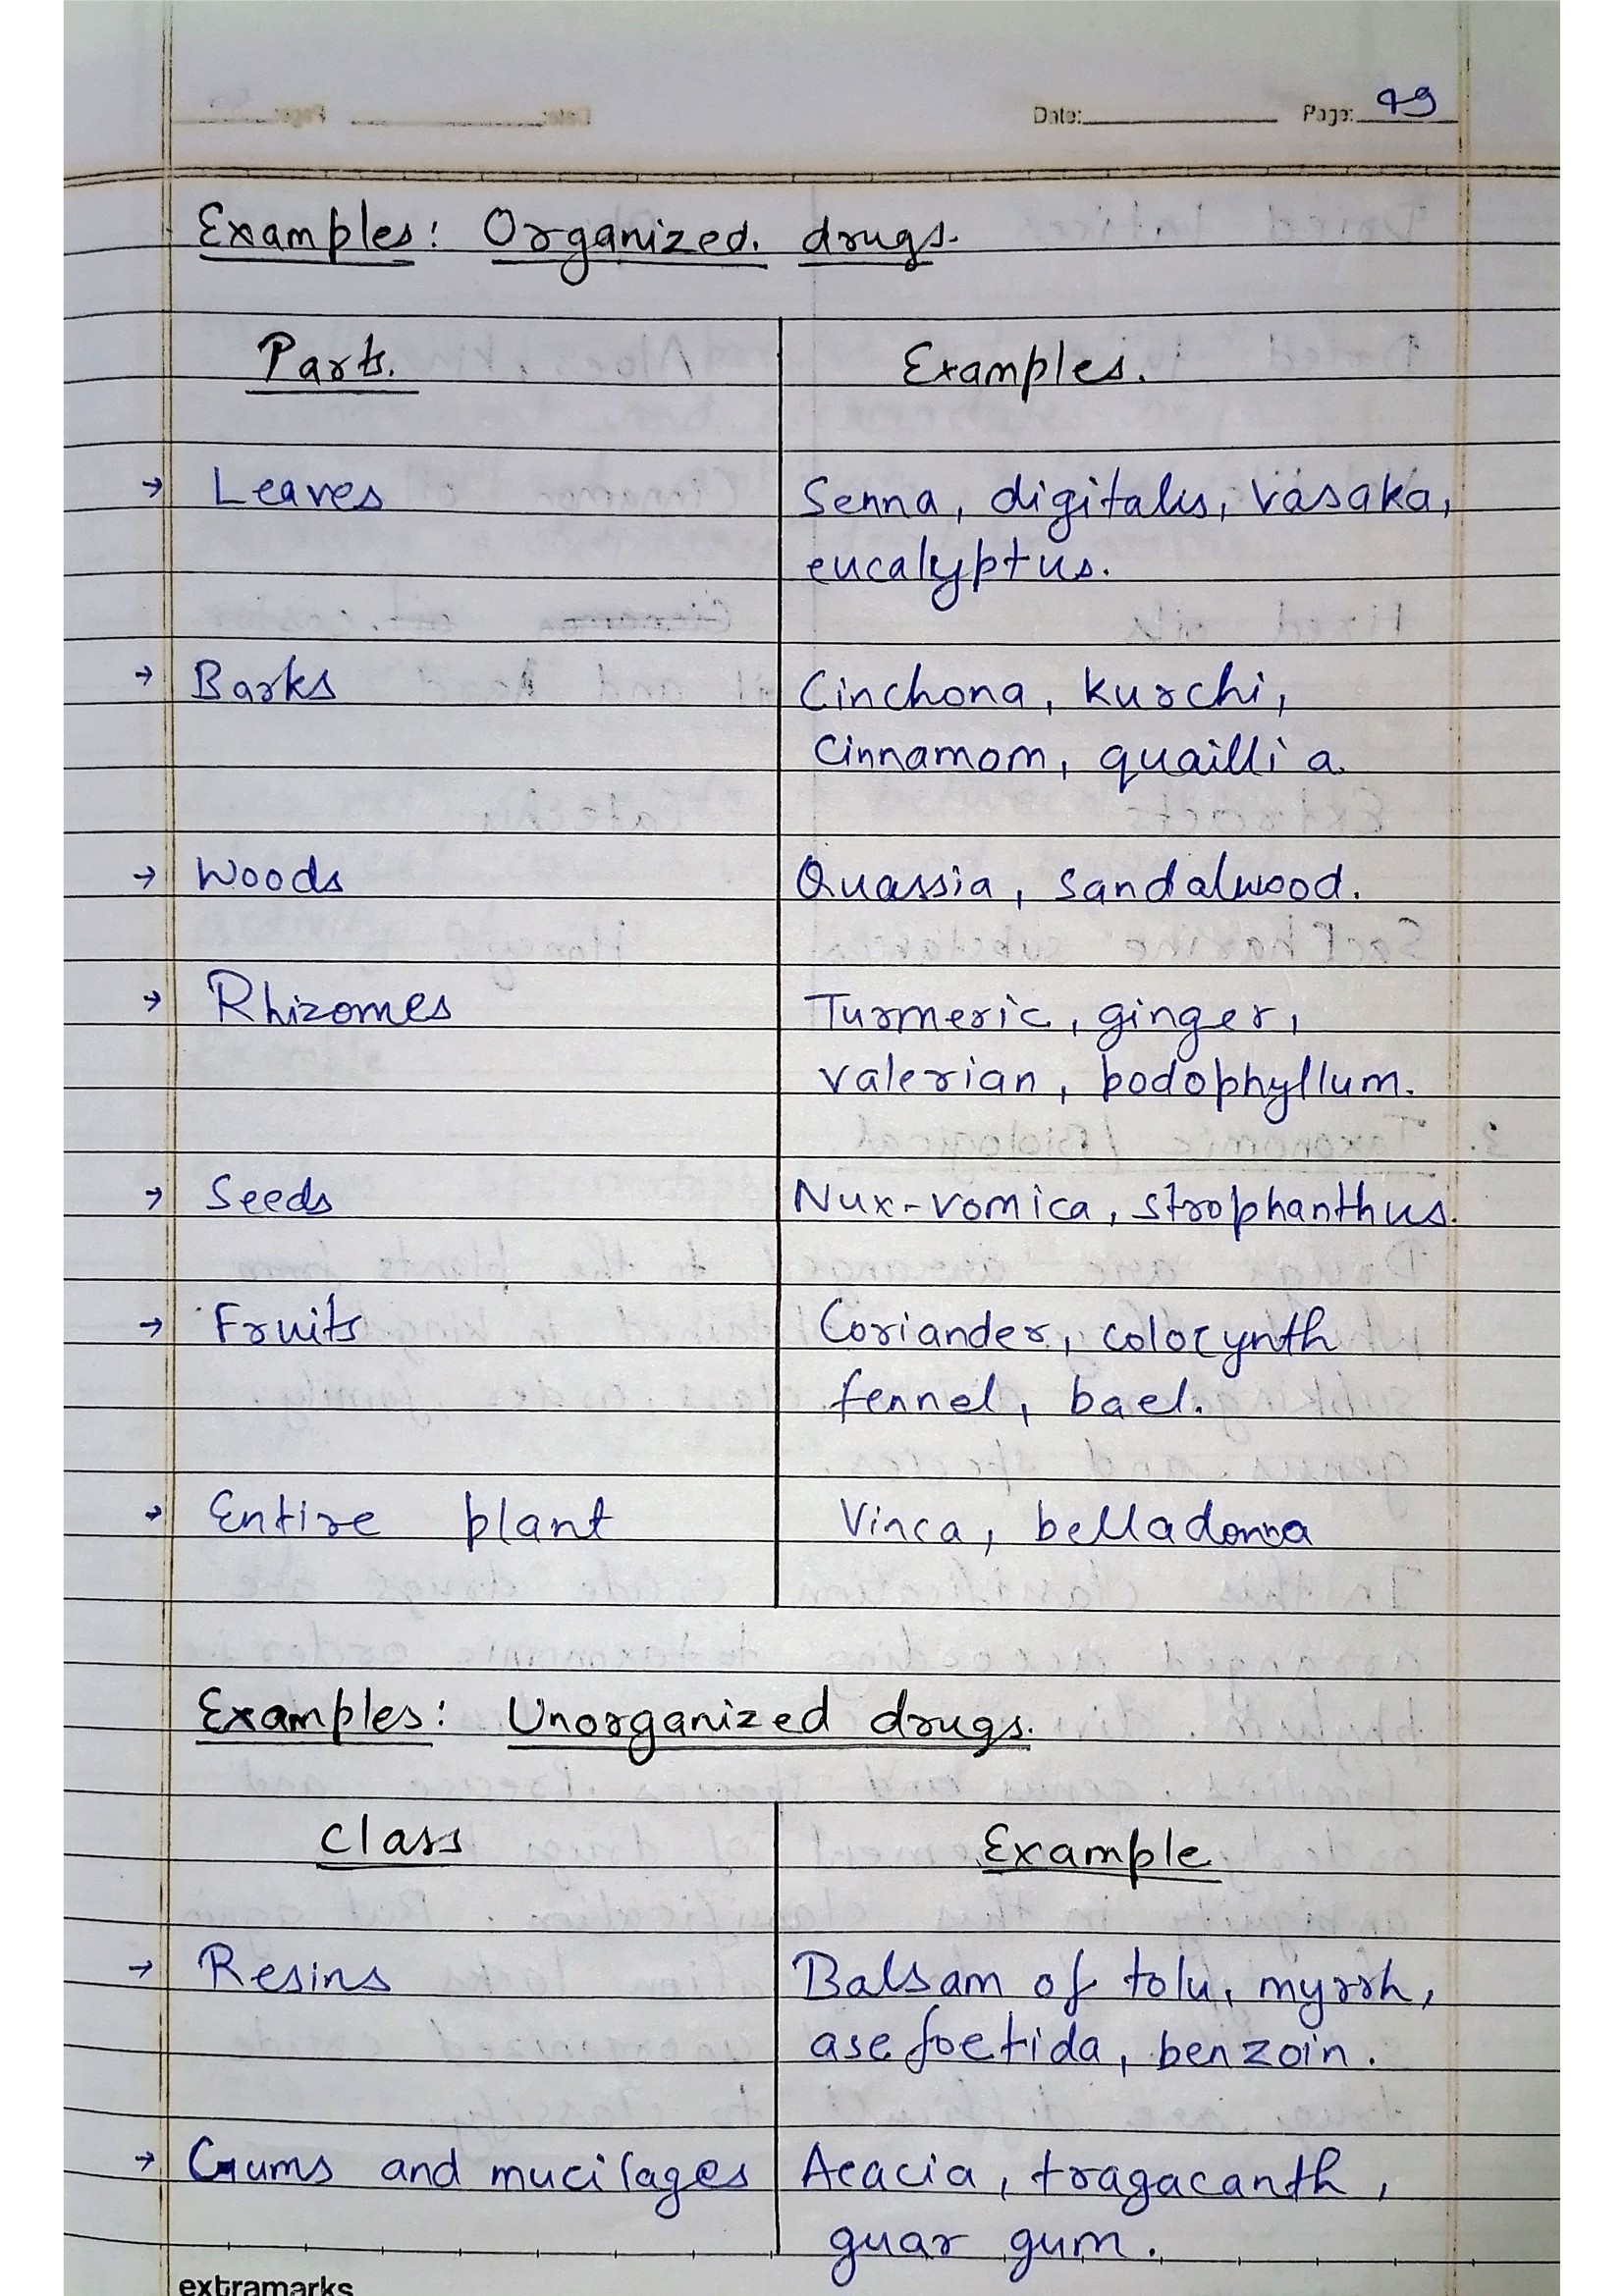 Date: Page: 49
Examples: Organized. drugs.
Parts. Examples.
→ Leaves Senna, digitalis, vasaka,
eucalyptus.
→ Barks Cinchona, kurchi,
Cinnamom, quailli a.
→ Woods Quassia, sandalwood.
→ Rhizomes Turmeric, ginger,
valerian, podophyllum.
→ Seeds Nux-vomica, strophanthus.
→ Fruits Coriander, colocynth
fennel, bael.
→ Entire plant Vinca, belladonna
Examples: Unorganized drugs.
Class Example
→ Resins Balsam of tolu, myrrh,
asefoetida, benzoin.
→ Gums and mucilages Acacia, tragacanth,
guar gum.
extramarks